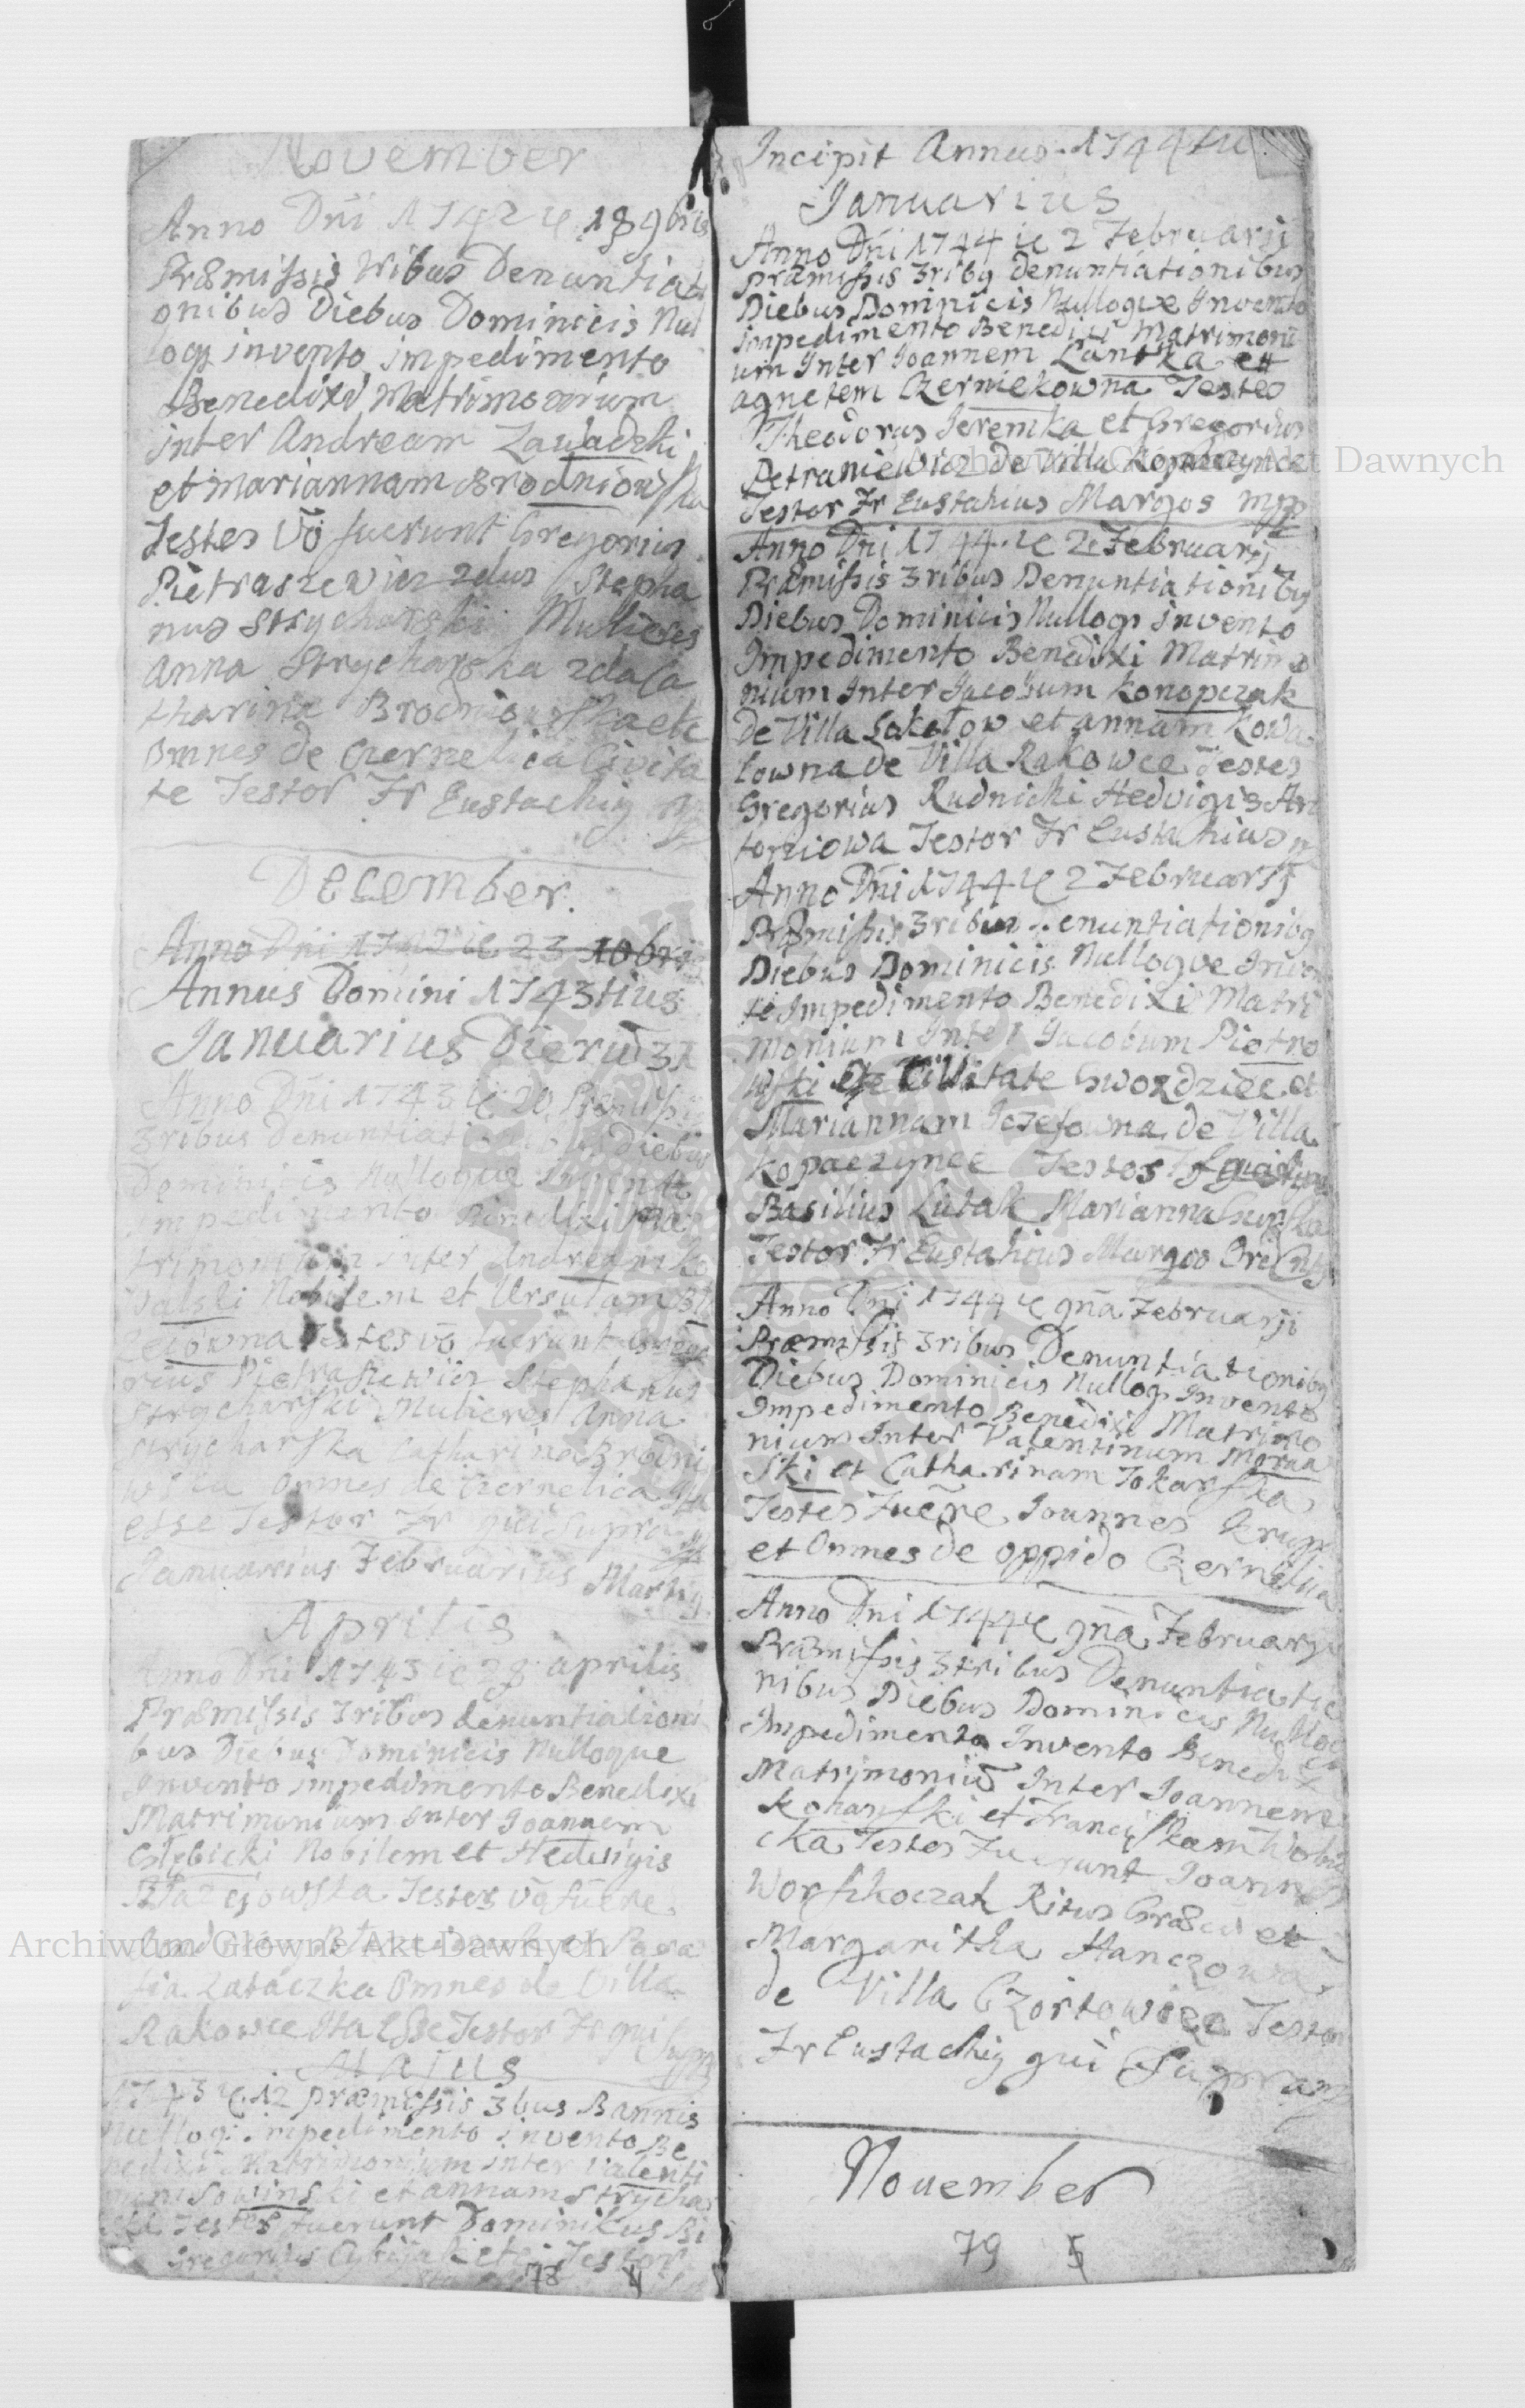 November
Anno Dñi 1742 ie 18 9bris
Præmissis tribus Denuntiati
onibus Diebus Dominicis Nul
loqz invento impedimento
Benedixi Matrimonium
inter Andream Zawadzki
et Mariannam Brodniowska
Testes vō fuerunt Gregorius
Pietraszewicz 2dus Stepha
nus Strycharski Mulieres
Anna Strycharska 2da Ca
tharina Brodniowska etc
Omnes de Czernelica Civita
te Testor Fr Eustachig
December.
Anno Dñi 1742 ie 23 10bris
Annus Domini 1743tius
Januarius Dierū 31
Anno Dñi 1743 ie 20 Præmissis
3ribus Denuntiationibus Diebus
Dominicis Nulloque Invento
impedimento Benedixi Ma
trimonium inter Andream Ko
walski Nobilem et Ursulam
Testes vō fuerunt Grego
rius Pietraszewicz Stephanus
Strycharski Mulieres Anna
Strycharska Catharina Brodni
wska omnes de Czernelica Ita
esse Testor Fr qui Supra
Januarius Februarius Martig
Aprilis
Anno Dñi 1743 ie 28 aprilis
Præmissis 3ribus denuntiationi
bus Diebus Dominicis Nulloque
Invento impedimento Benedixi
Matrimonium inter Joannem
Głębicki Nobilem et Hedvigis
Błazejowska Testes vō fuere
Zataczka Omnes de Villa
Rakowce Ita Esse Testor Fr qui Supra
Maius
1743 ie 12 præmissis 3bus Bannis
Nulloqz impedimento invento Be
nedixi Matrimonium inter Valenti
num Sowinski et annam Strychar
ska Testes fuerunt Dominikus Bi
Gregorius etc Testor
78
Incipit Annus 1744tu
Januarius
Anno Dñi 1744 ie 2 Februarij
præmissis 3ribg denuntiationibus
Diebus Dominicis Nulloque Invento
impedimento Benedixi Matrimoni
um Inter Joannem Lantka et
agnetem Czerniekowna Testes
Theodorus Jeremka et Gregorius
Petraniewicz de Villa Kopaczynce
Testor Fr Eustahius Margos mpp
Anno Dñi 1744 ie 2 Februarij
Præmissis 3ribus Denuntiationibg
Diebus Dominicis Nulloqz invento
Impedimento Benedixi Matrimo
nium Inter Jacobum Konopczak
de Villa Sokołow et annam Kowa
lowna de Villa Rakowce Testes
Gregorius Rudnicki Hedvigis An
toniowa Testor Fr Eustachius
Anno Dñi 1744 ie 2 Februarij
Præmissis 3ribus Denuntiationibg
Diebus Dominicis Nulloque Inven
to Impedimento Benedixi Matri
monium Inter Jacobum Piotro
wski de Civitate Gwozdziec et
Mariannam Jozefowna de Villa
Kopaczynce Testes
Basilius Lutak Marianna
Testor Fr Eustahius Margos
Anno Dñi 1744 ie 9na Februarji
Præmissis 3ribus Denuntiationibg
Diebus Dominicis Nulloqz Invento
Impedimento Benedixi Matrimo
nium Inter Valentinum Moraa
ski et Catharinam Tokarska
Testes Fuēre Joannes Krupa
et Omnes de oppido Czernelica
Anno Dñi 1744 ie 9nā Februarji
Præmissis 3tribus Denuntiatio
nibus Diebus Dominicis Nulloqz
Impedimento Invento Benedixi
Matrimoniū Inter Joannem
Kohanski et Franciskam
cka Testes Fuerunt Joannes
Worszkoczak Ritus Græci et
Margaritha Hanczowa
de Villa Czortowiec Testor
Fr Eustachig qui Supra
November
79 5
Archiwum Główne Akt Dawnych
Archiwum Główne Akt Dawnych